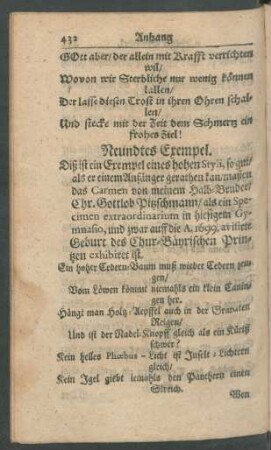 432 Anhang
GOtt aber/ der allein mit Krafft verrichten
wil/
Wovon wir Sterbliche nur wenig können
lallen/
Der lasse diesen Trost in ihren Ohren schal-
len/
Und stecke mit der Zeit dem Schmertz ein
frohes Ziel!
Neundtes Exempel.
Diß ist ein Exempel eines hohen Styli, so gut/
als er einem Anfänger gerathen kan/ maßen
das Carmen von meinem Halb-Bruder/
Chr. Gottlob Pitzschmann/ als ein Spe-
cimen extraordinarium in hiesigem Gy-
mnasio, und zwar auff die A. 1699.
Geburt des Chur-Bäyrischen Prin-
tzen exhibiret ist.
Ein hoher Cedern-Baum muß wieder Cedern zeu-
gen/
Vom Löwen kömmt niemahls ein klein Canin-
gen her.
Hängt man Holtz-Aepffel auch in der Granaten
Reigen/
Und ist der Nadel-Knopff gleich als ein
schwer?
Kein helles Phœbus-Licht ist Inselt-Lichtern
gleich/
Kein Igel giebt iemahls den Panthern einen
Streich.
Wen